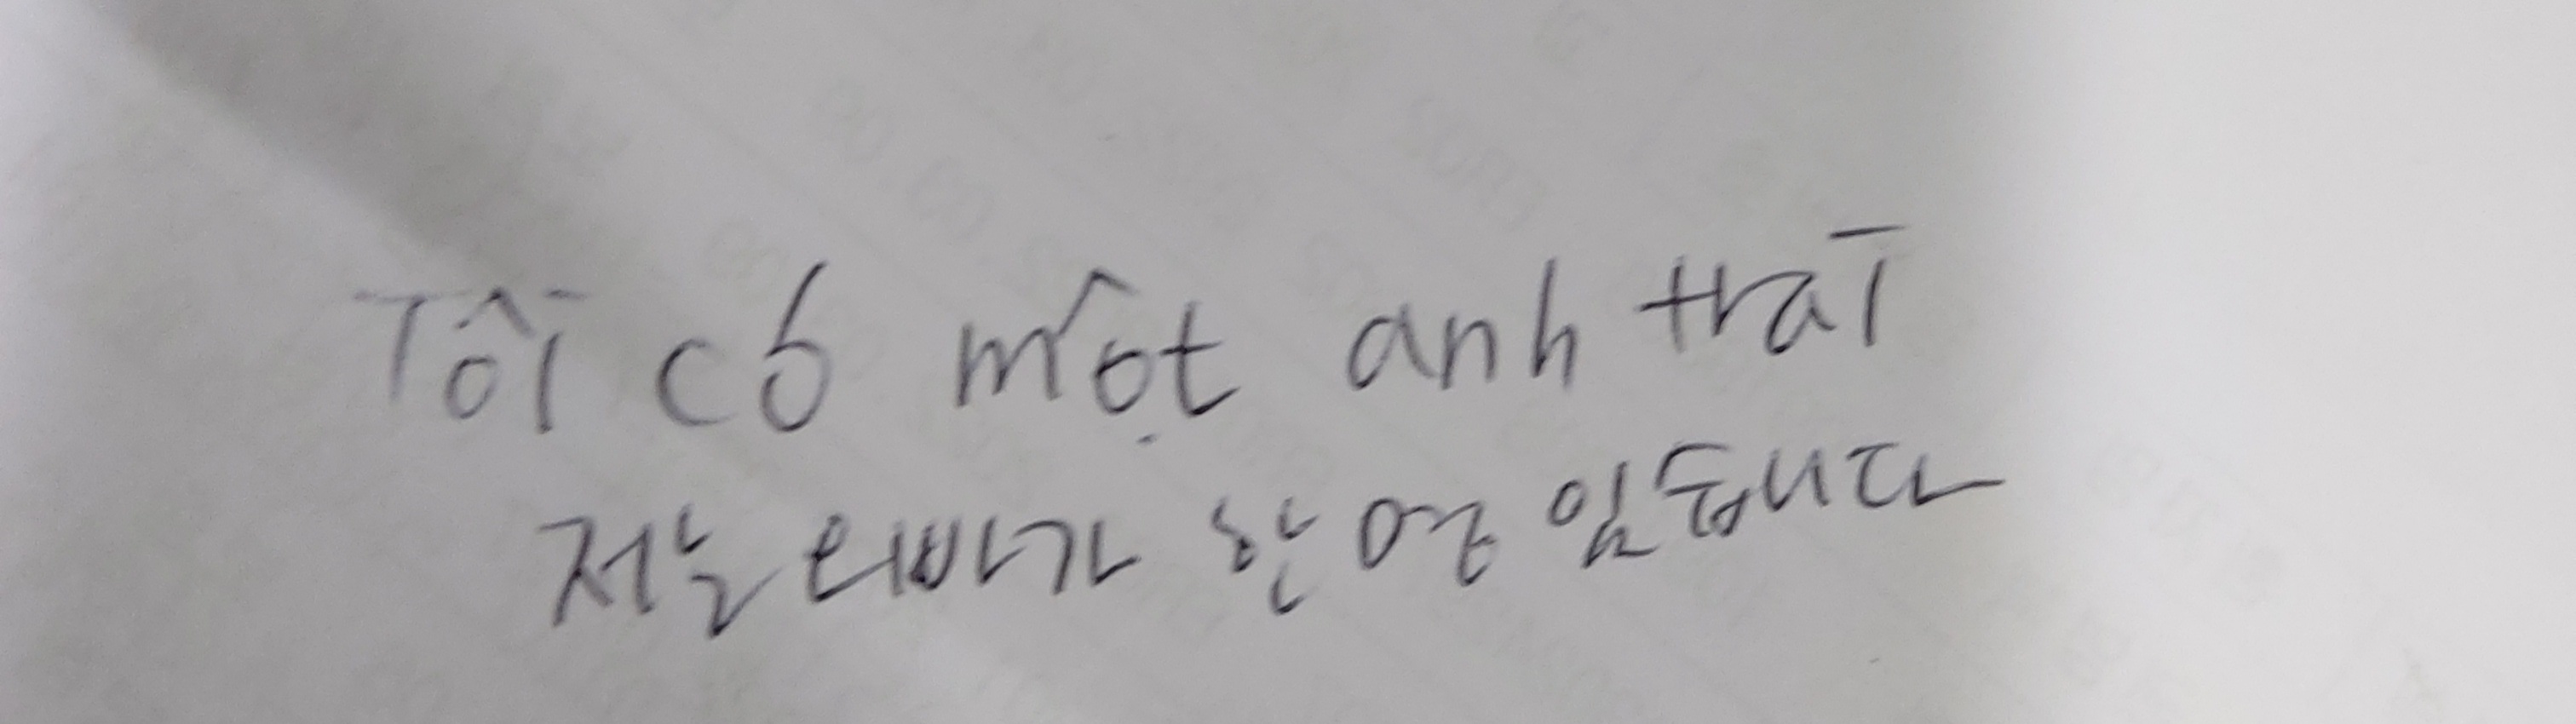 Tôi có một anh trai
저는 오빠가 한 명 있습니다